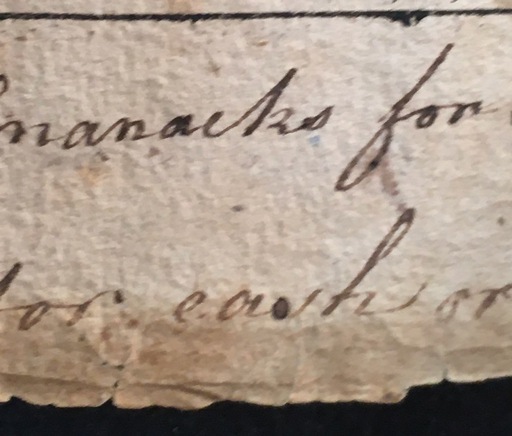 manacks for
for cash or